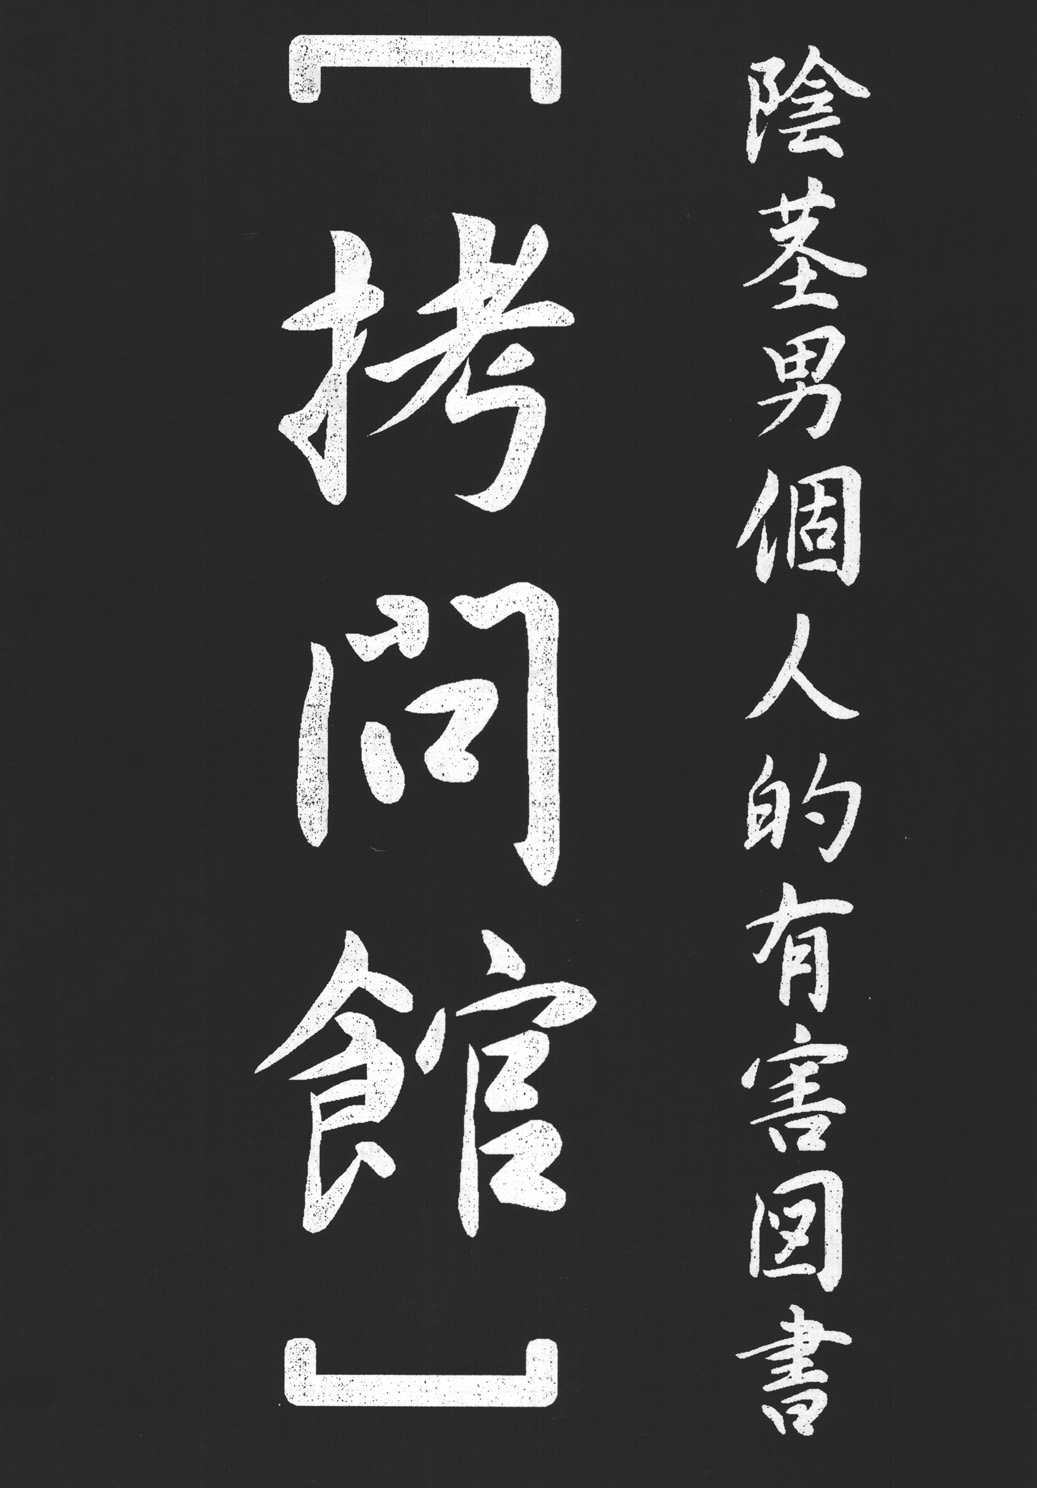 陰茎男個人的有害図書
[拷問館]